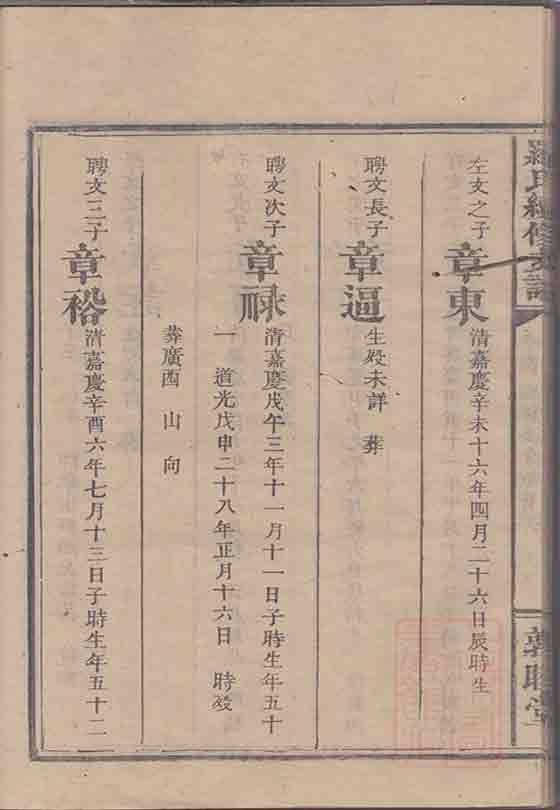 羅氏續修支譜
敦睦堂
左文之子
章東
清嘉慶辛未十六年四月二十六日辰時生
聘文長子
章逼
生殁未詳 葬
聘文次子
章祿
清嘉慶戊午三年十一月十一日子時生年五十
一 道光戊申二十八年正月十六日 時殁
葬廣西 山 向
聘文三子
章裕
清嘉慶辛酉六年七月十三日子時生年五十二